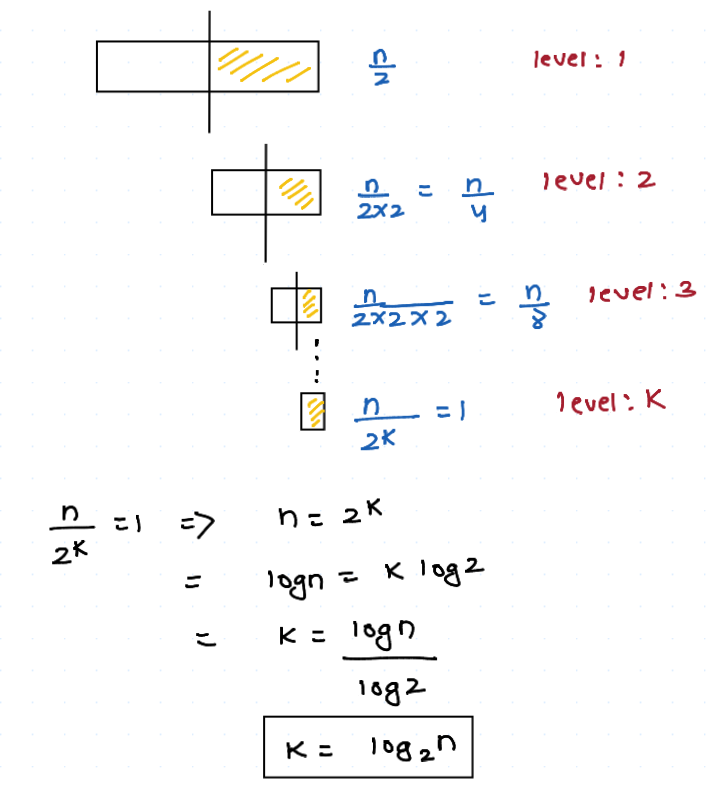 n/2 level: 1
n/2×2 = n/4 level: 2
n/2×2×2 = n/8 level: 3
n/2^K = 1 level: K
n/2^K = 1 => n = 2^K
= logn = K log2
= K = logn/log2
K = log₂n